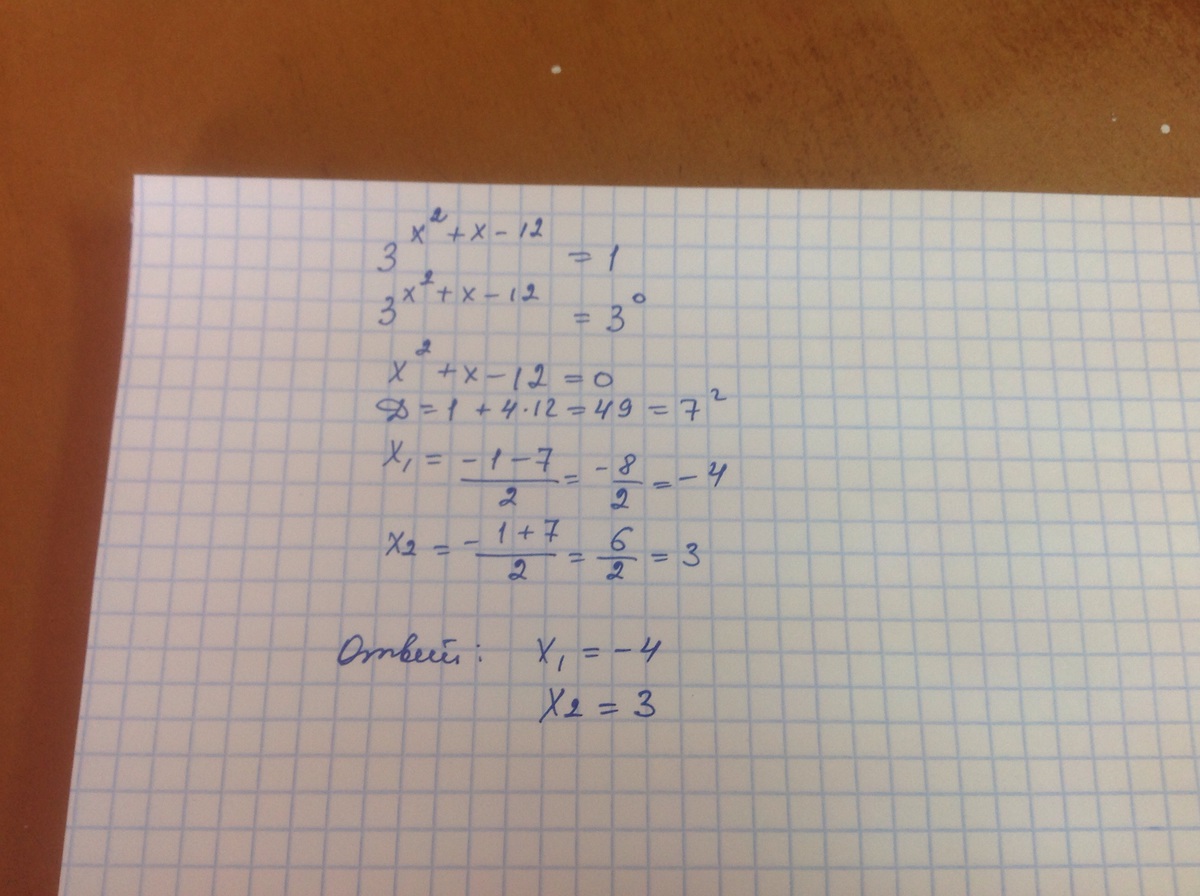 3^{x^2+x-12} = 1
3^{x^2+x-12} = 3^0
x^2+x-12=0
D=1+4·12=49=7^2
x_1 = \frac{-1-7}{2} = \frac{-8}{2} = -4
x_2 = \frac{-1+7}{2} = \frac{6}{2} = 3
Ответ: x_1 = -4
x_2 = 3